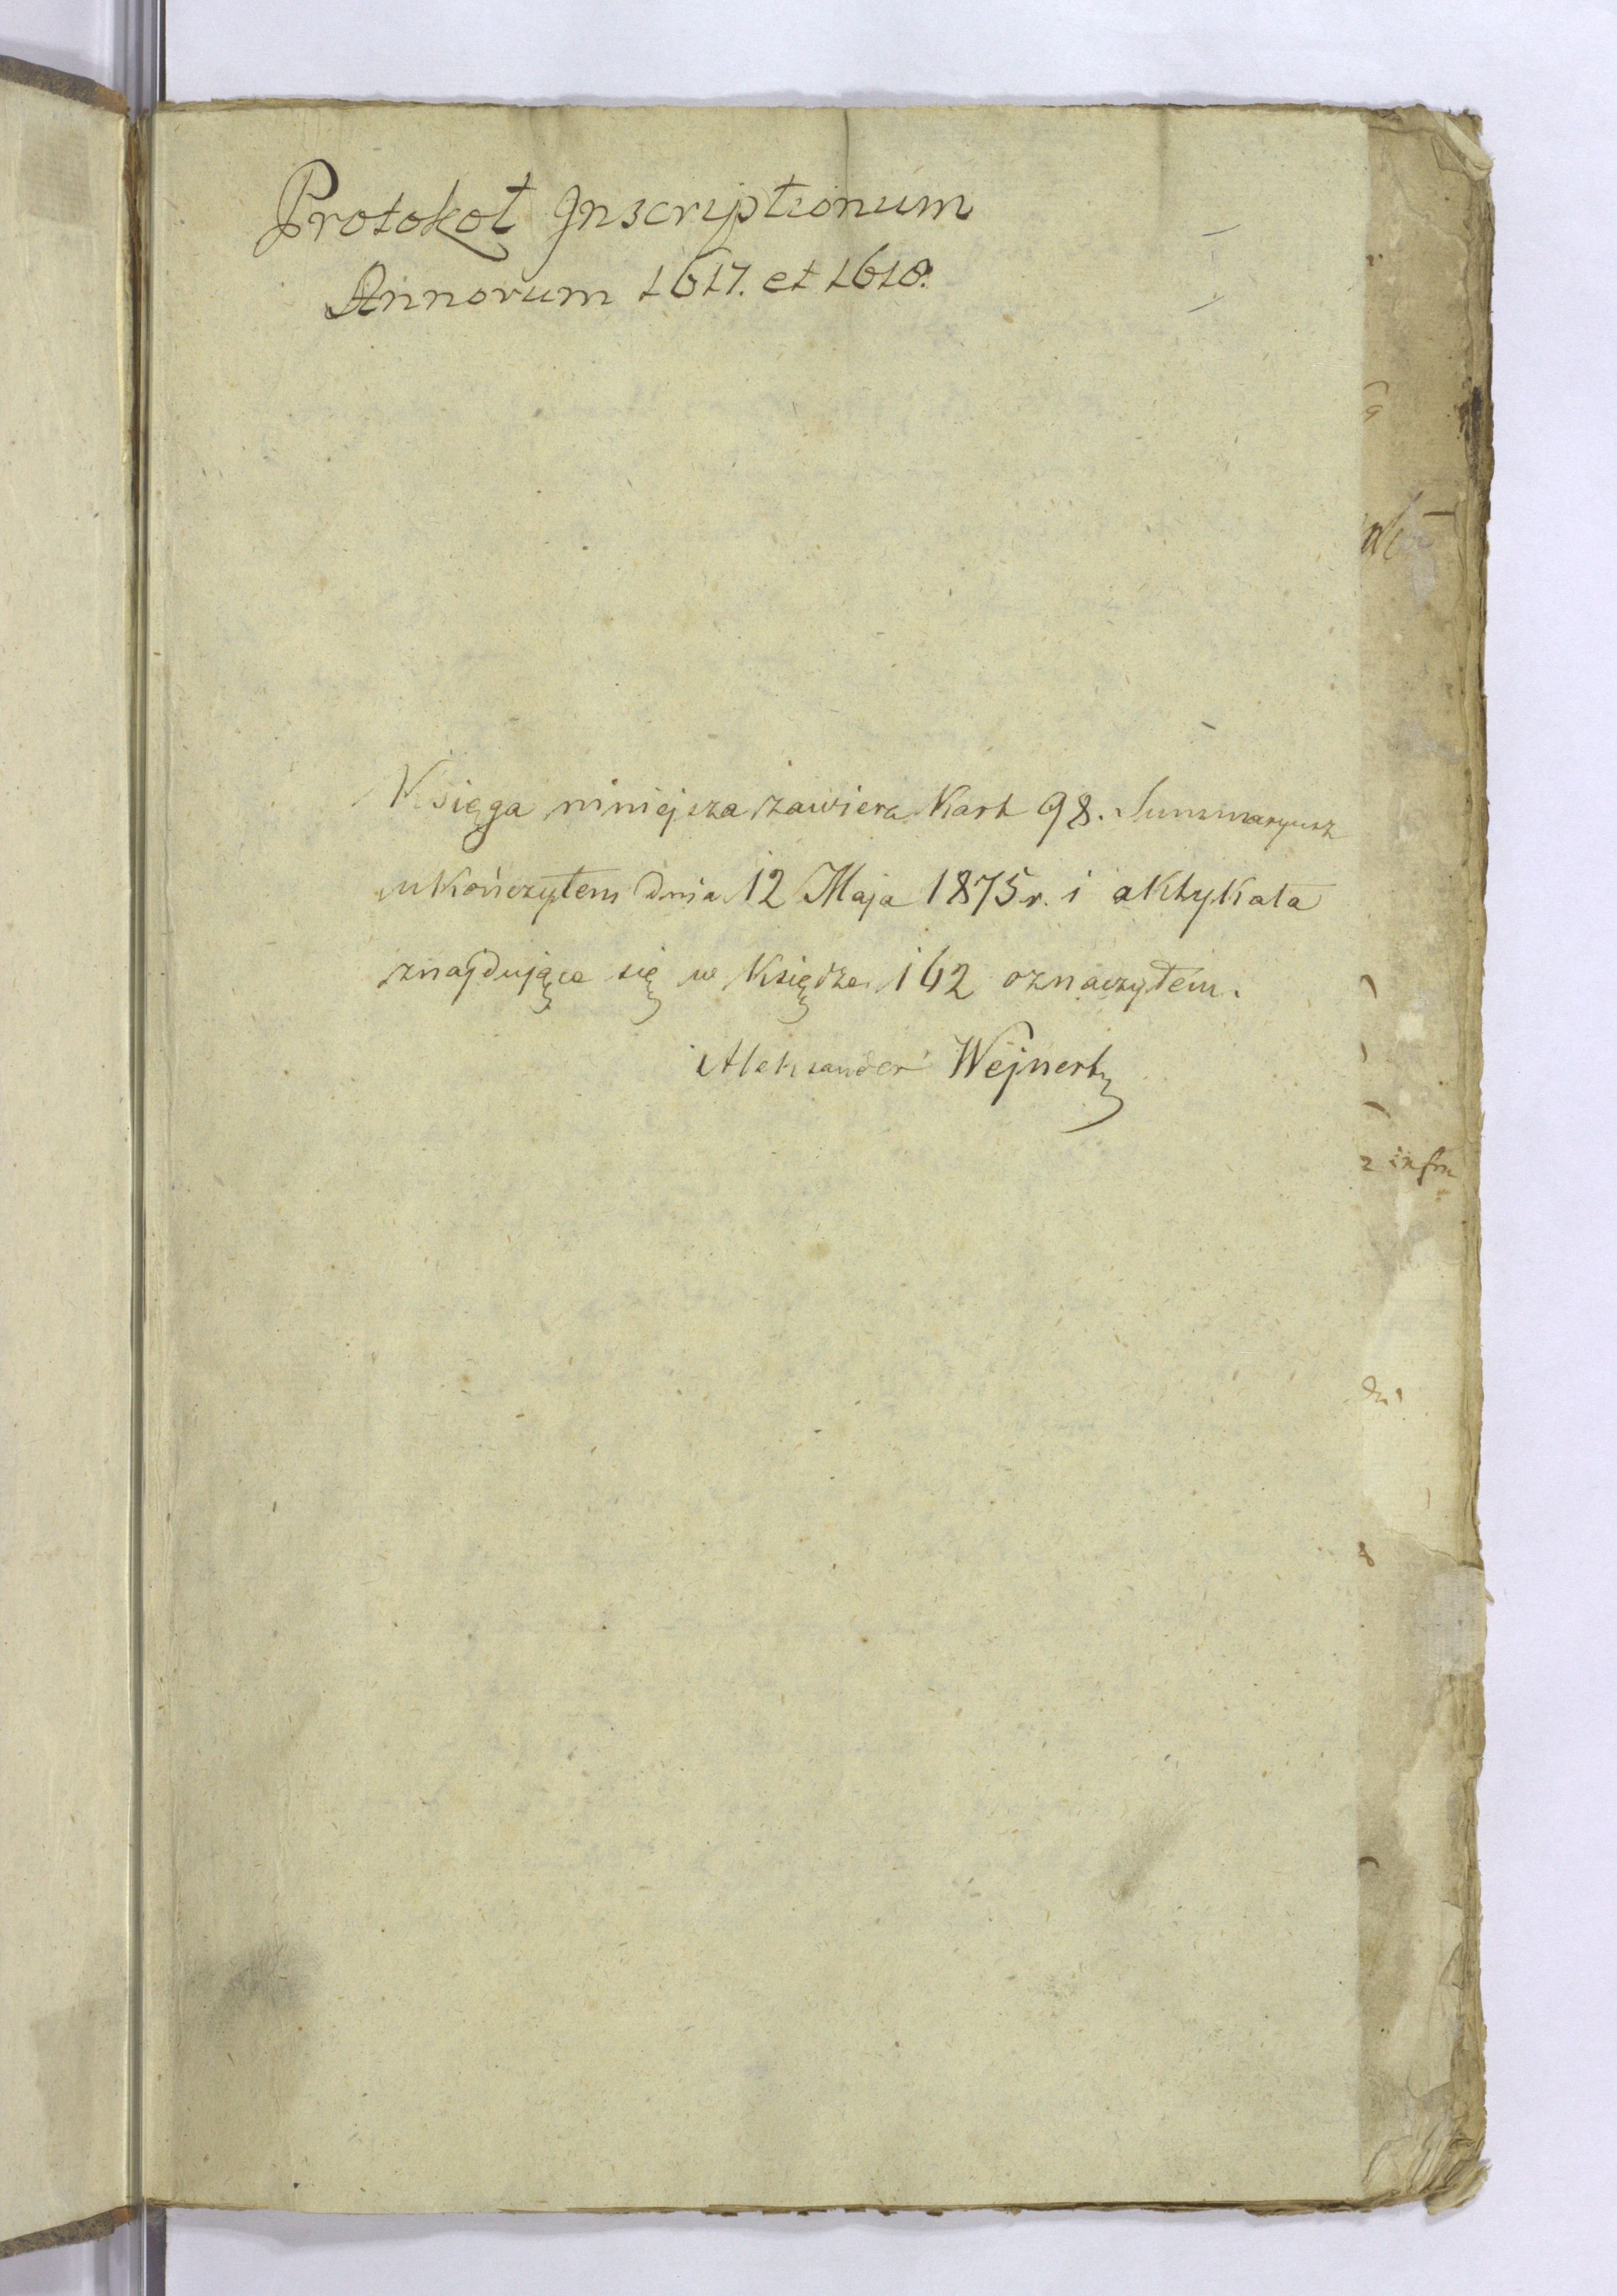 Protokoł Inscriptionum
Annorum 1617. et 1618.
Księga niniejsza zawiera Kart 98. Summaryusz
ukończyłem dnia 12 Maja 1875 r. i aktykata
znajdujące się w Księdze 142 oznaczyłem.
Aleksander Wejnert
infra